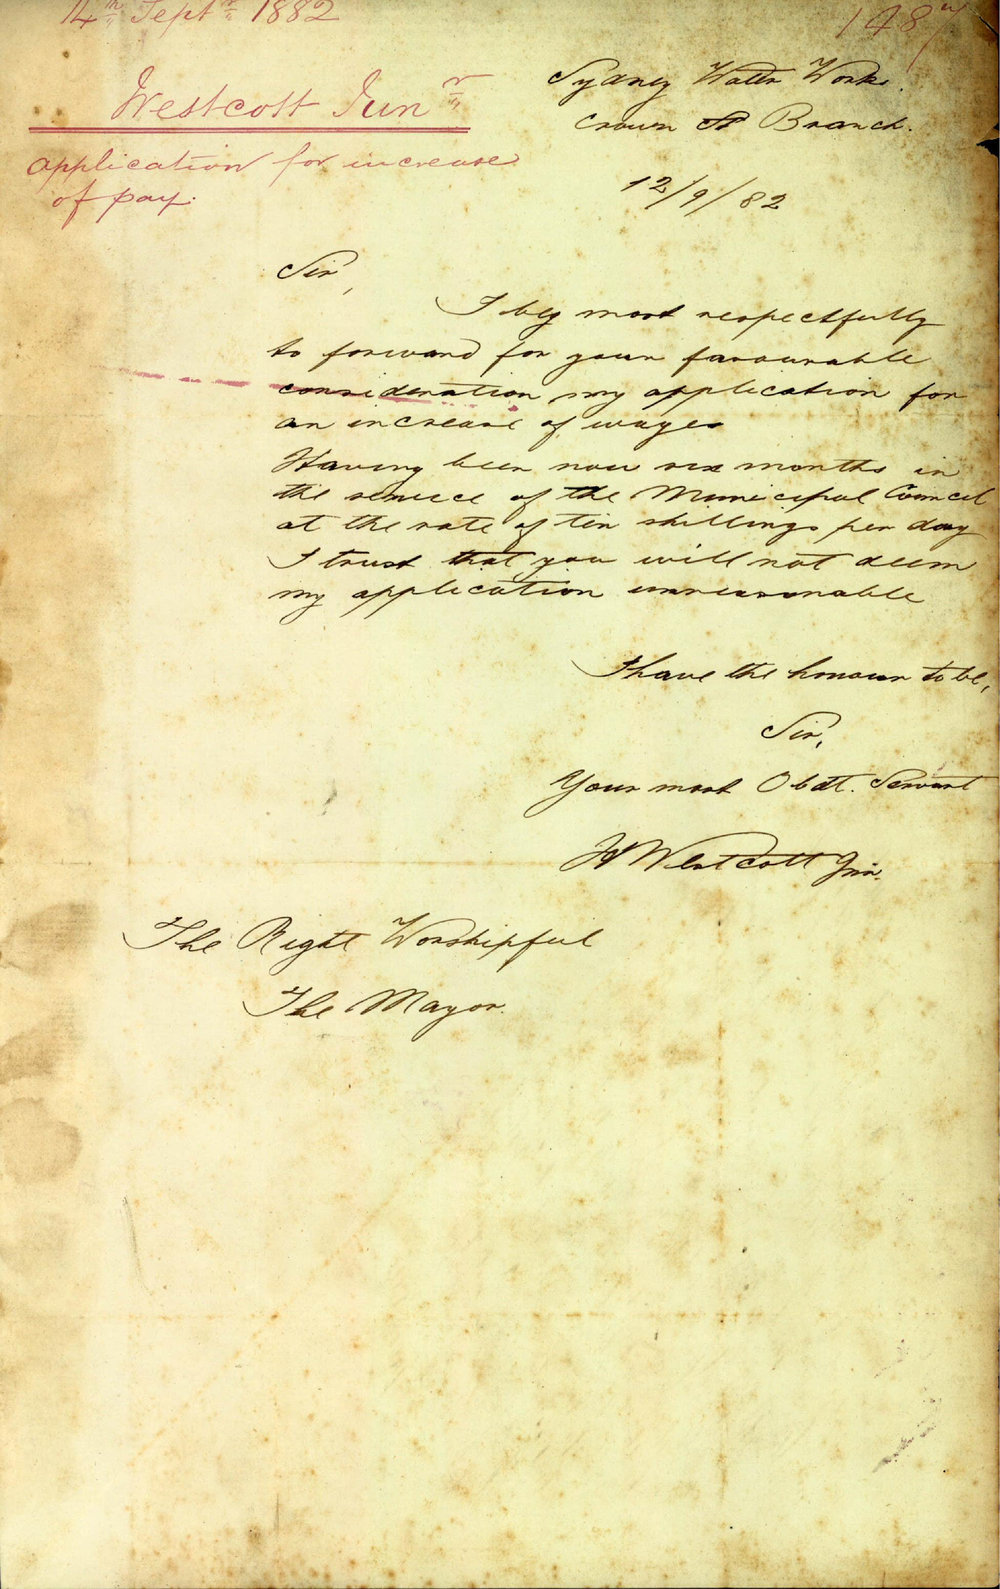 14th Septr 1882
Westcott Junr
application for increase
of pay.
Sydney Water Works.
Crown St Branch.
12/9/82
Sir,
I beg most respectfully
to forward for your favourable
consideration my application for
an increase of wages
Having been now six months in
the service of the Municipal Council
at the rate of ten shillings per day
I trust that you will not deem
my application unreasonable
I have the honour to be,
Sir,
Your most Obdt. Servant
H Westcott Jnr.
The Right Worshipful
The Mayor.